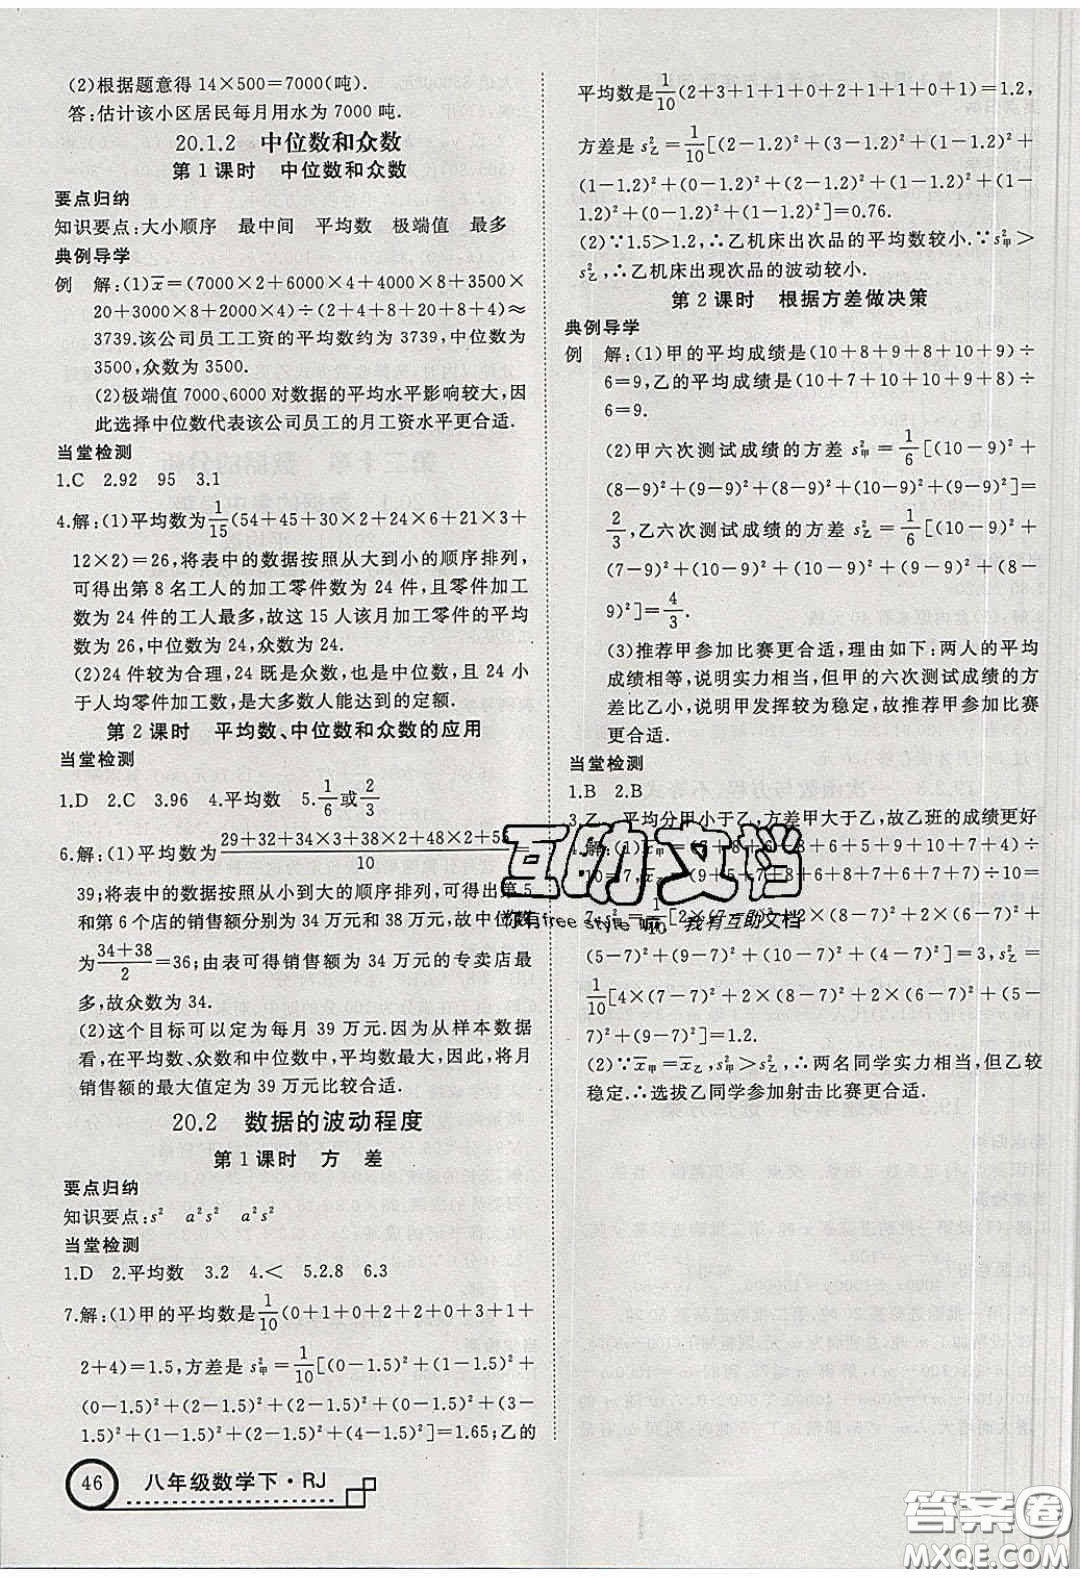 (2)根据题意得14×500=7000(吨).
答:估计该小区居民每月用水为7000吨.
20.1.2 中位数和众数
第1课时 中位数和众数
要点归纳
知识要点:大小顺序 最中间 平均数 极端值 最多
典例导学
例 解:(1)x̄=(7000×2+6000×4+4000×8+3500
×20+3000×8+2000×4)÷(2+4+8+20+8+4)≈
3739.该公司员工工资的平均数约为3739,中位数为
3500,众数为3500.
(2)极端值7000、6000对数据的平均水平影响较大,因
此选择中位数代表该公司员工的月工资水平更合适.
当堂检测
1.C 2.92 95 3.1
4.解:(1)平均数为1/15(54+45+30×2+24×6+21×3+
12×2)=26,将表中的数据按照从大到小的顺序排列,
可得出第8名工人的加工零件数为24件,且零件数为
24件的工人最多,故这15人该月加工零件的平均
数为26,中位数为24,众数为24.
(2)24件较为合理,24既是众数,也是中位数,且24小
于人均零件加工数,是大多数人能达到的定额.
第2课时 平均数、中位数和众数的应用
当堂检测
1.D 2.C 3.96 4.平均数 5.1/6或2/3
6.解:(1)平均数为(29+32+34×3+38×2+48×2+55)/10=
39;将表中的数据按照从小到大的顺序排列,可得出第5
和第6个店的销售额分别为34万元和38万元,故中位数
为(34+38)/2=36;由表可得销售额为34万元的专卖店最
多,故众数为34.
(2)这个目标可以定为每月39万元.因为从样本数据
看,在平均数、众数和中位数中,平均数最大,因此,将月
销售额的最大值定为39万元比较合适.
20.2 数据的波动程度
第1课时 方 差
要点归纳
知识要点:s² a²s² a²s²
当堂检测
1.D 2.平均数 3.2 4.< 5.2.8 6.3
7.解:(1)甲的平均数是1/10(0+1+0+2+2+0+3+1+
2+4)=1.5,方差是s²甲=1/10[(0-1.5)²+(1-1.5)²+
(0-1.5)²+(2-1.5)²+(2-1.5)²+(0-1.5)²+(3-
1.5)²+(1-1.5)²+(2-1.5)²+(4-1.5)²]=1.65;乙的
46 八年级数学下·RJ
平均数是1/10(2+3+1+1+0+2+1+1+0+1)=1.2,
方差是s²乙=1/10[(2-1.2)²+(3-1.2)²+(1-1.2)²+
(1-1.2)²+(0-1.2)²+(2-1.2)²+(1-1.2)²+(1-
1.2)²+(0-1.2)²+(1-1.2)²]=0.76.
(2)∵1.5>1.2,∴乙机床出次品的平均数较小.∵s²甲>
s²乙,∴乙机床出现次品的波动较小.
第2课时 根据方差做决策
典例导学
例 解:(1)甲的平均成绩是(10+8+9+8+10+9)÷
6=9,乙的平均成绩是(10+7+10+10+9+8)÷
6=9.
(2)甲六次测试成绩的方差s²甲=1/6[(10-9)²+
(8-9)²+(9-9)²+(8-9)²+(10-9)²+(9-9)²]=
2/3,乙六次测试成绩的方差s²乙=1/6[(10-9)²+
(7-9)²+(10-9)²+(10-9)²+(9-9)²+(8-
9)²]=4/3.
(3)推荐甲参加比赛更合适,理由如下:两人的平均
成绩相等,说明实力相当,但甲的六次测试成绩的方
差比乙小,说明甲发挥较为稳定,故推荐甲参加比赛
更合适.
当堂检测
1.B 2.B
3.乙 平均分甲小于乙,方差甲大于乙,故乙班的成绩更好
4.解:(1)x̄甲=(7+8+6+8+6+5+9+10+7+4)÷
10=7,x̄乙=(9+5+7+8+7+6+8+6+7+7)÷10=
7.s²甲=1/10[2×(7-7)²+2×(8-7)²+2×(6-7)²+
(5-7)²+(9-7)²+(10-7)²+(4-7)²]=3,s²乙=
1/10[4×(7-7)²+2×(8-7)²+2×(6-7)²+(5-
7)²+(9-7)²]=1.2.
(2)∵x̄甲=x̄乙,s²甲>s²乙,∴两名同学实力相当,但乙较
稳定.∴选拔乙同学参加射击比赛更合适.
互助文档
你有free style嘛 我有互助文档
答案圈
MXQE.COM